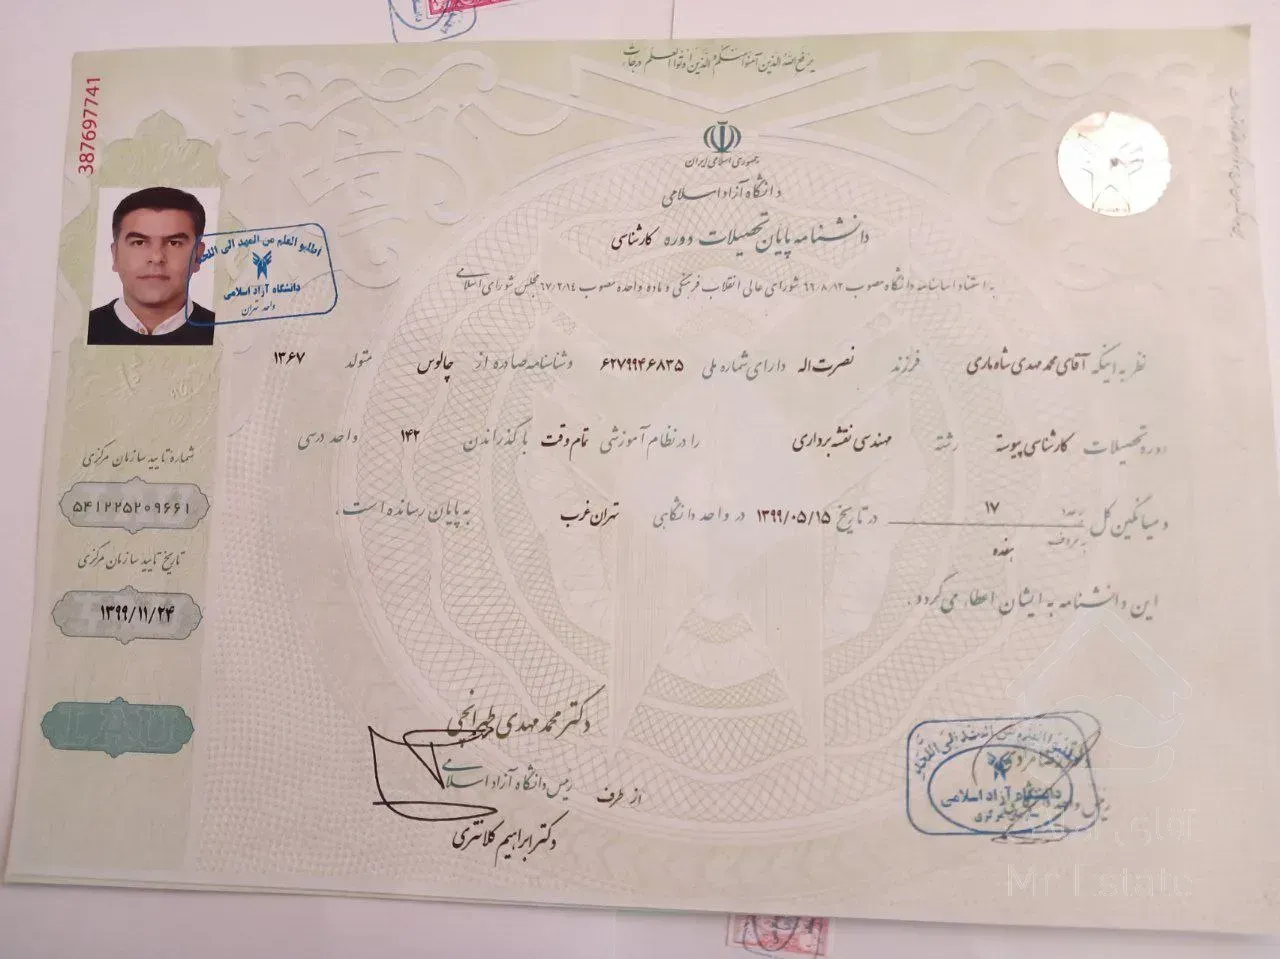 387697741
یرفع الله الذین آمنوا منکم والذین اوتوا العلم درجات
جمهوری اسلامی ایران
دانشگاه آزاد اسلامی
دانشنامه پایان تحصیلات دوره کارشناسی
به استناد اساسنامه دانشگاه مصوب ۶۶/۸/۱۲ شورای عالی انقلاب فرهنگی و ماده واحده مصوب ۶۷/۲/۱۴ مجلس شورای اسلامی
نظر به اینکه آقای محمد مهدی شاه ماری فرزند نصرت اله دارای شماره ملی ۶۲۷۹۹۴۶۸۳۵ و شناسنامه صادره از چالوس متولد ۱۳۶۷
دوره تحصیلات کارشناسی پیوسته رشته مهندسی نقشه برداری را در نظام آموزشی تمام وقت با گذراندن ۱۴۲ واحد درسی
و میانگین کل به عدد ۱۷ به حروف هفده در تاریخ ۱۳۹۹/۰۵/۱۵ در واحد دانشگاهی تهران غرب به پایان رسانده است.
این دانشنامه به ایشان اعطاء می گردد.
اطلبو العلم من المهد الی اللحد
دانشگاه آزاد اسلامی
واحد تهران
شماره تایید سازمان مرکزی
۵۴۱۲۲۵۲۰۹۶۶۱
تاریخ تایید سازمان مرکزی
۱۳۹۹/۱۱/۲۴
IAU
دکتر محمد مهدی طهرانچی
رئیس دانشگاه آزاد اسلامی
از طرف
دکتر ابراهیم کلانتری
دانشگاه آزاد اسلامی
آقای املاک
Mr Estate